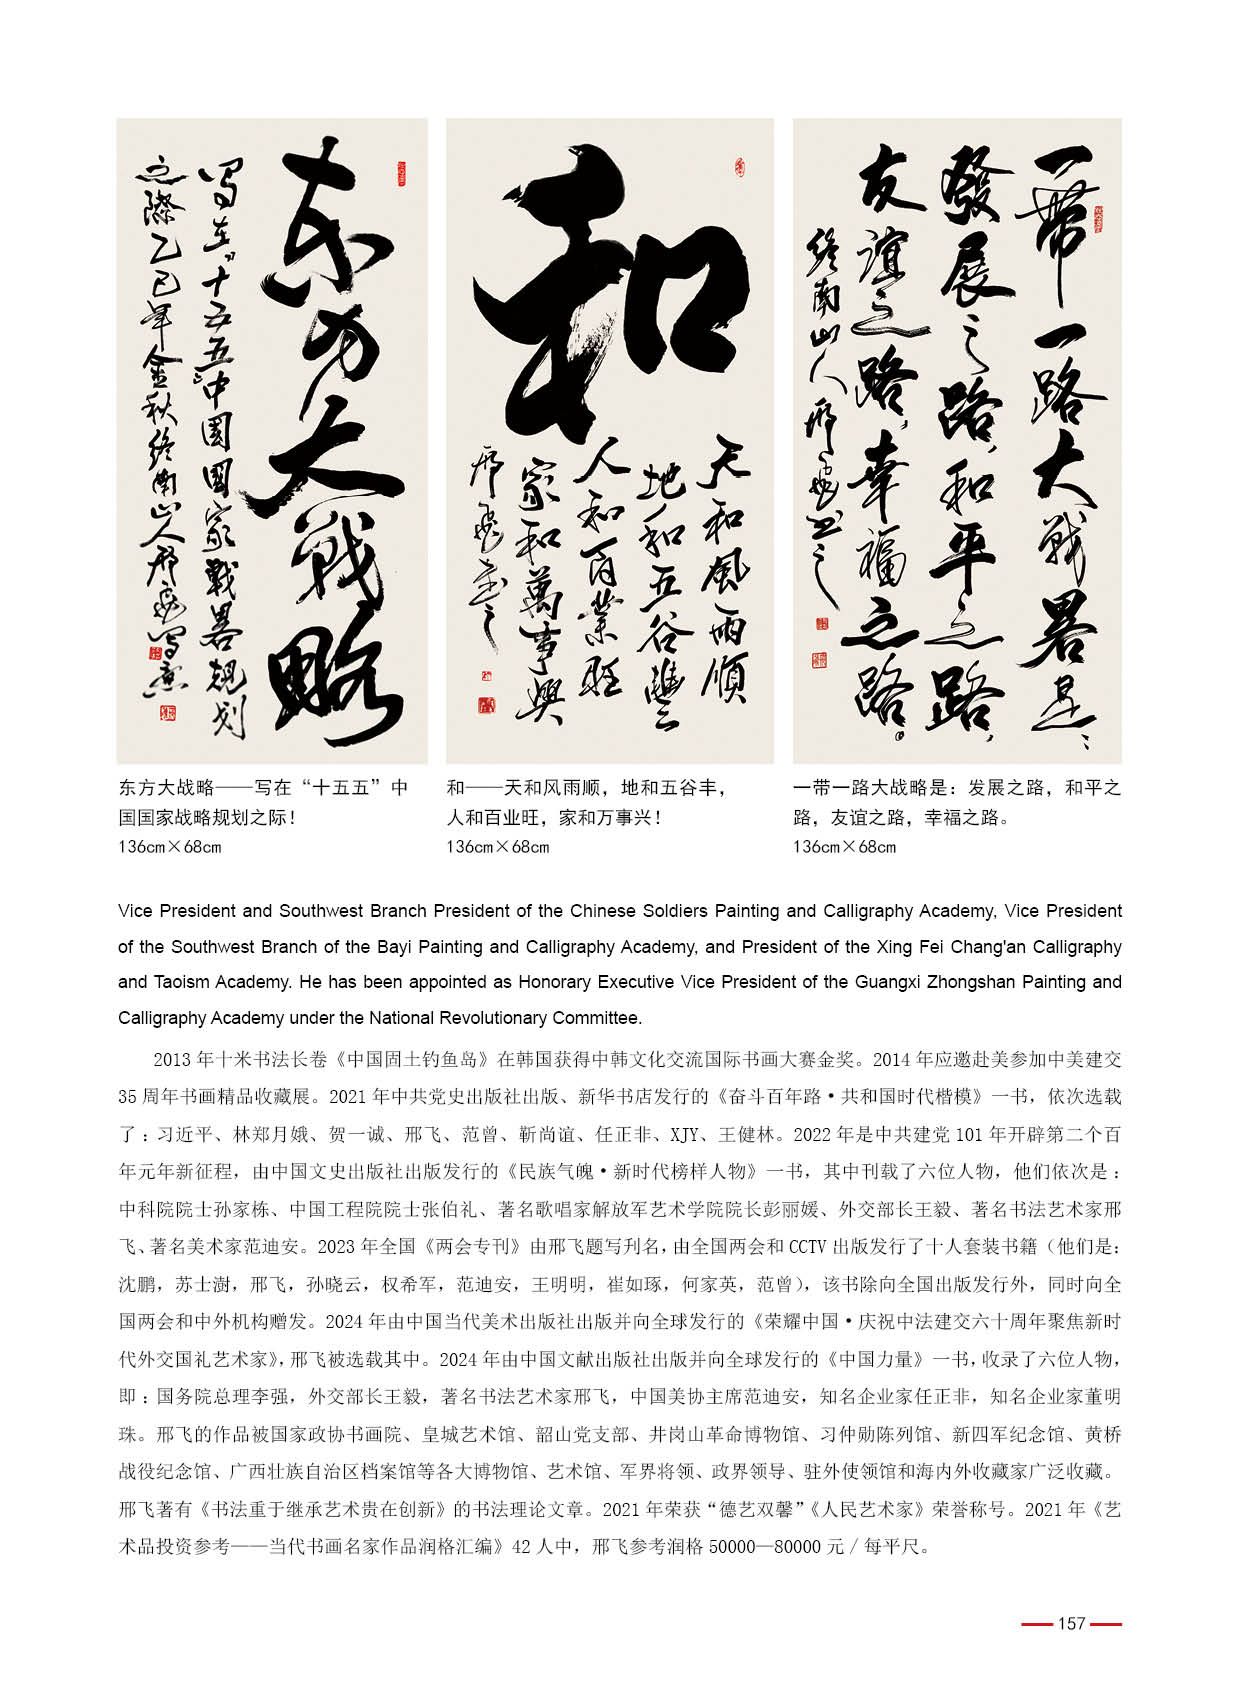 东方大战略
写在“十五五”中国国家战略规划
之际乙巳年金秋终南山人邢飞写意
和
天和风雨顺
地和五谷豐
人和百业旺
家和萬事興
邢飞书之
一带一路大战略是：
發展之路，和平之路，
友谊之路，幸福之路。
终南山人邢飞书之
东方大战略——写在“十五五”中
国国家战略规划之际！
136cm×68cm
和——天和风雨顺，地和五谷丰，
人和百业旺，家和万事兴！
136cm×68cm
一带一路大战略是：发展之路，和平之
路，友谊之路，幸福之路。
136cm×68cm
Vice President and Southwest Branch President of the Chinese Soldiers Painting and Calligraphy Academy, Vice President
of the Southwest Branch of the Bayi Painting and Calligraphy Academy, and President of the Xing Fei Chang'an Calligraphy
and Taoism Academy. He has been appointed as Honorary Executive Vice President of the Guangxi Zhongshan Painting and
Calligraphy Academy under the National Revolutionary Committee.
2013 年十米书法长卷《中国固土钓鱼岛》在韩国获得中韩文化交流国际书画大赛金奖。2014 年应邀赴美参加中美建交
35 周年书画精品收藏展。2021 年中共党史出版社出版、新华书店发行的《奋斗百年路·共和国时代楷模》一书，依次选载
了：习近平、林郑月娥、贺一诚、邢飞、范曾、靳尚谊、任正非、XJY、王健林。2022 年是中共建党 101 年开辟第二个百
年元年新征程，由中国文史出版社出版发行的《民族气魄·新时代榜样人物》一书，其中刊载了六位人物，他们依次是：
中科院院士孙家栋、中国工程院院士张伯礼、著名歌唱家解放军艺术学院院长彭丽媛、外交部长王毅、著名书法艺术家邢
飞、著名美术家范迪安。2023 年全国《两会专刊》由邢飞题写刊名，由全国两会和 CCTV 出版发行了十人套装书籍（他们是：
沈鹏，苏士澍，邢飞，孙晓云，权希军，范迪安，王明明，崔如琢，何家英，范曾），该书除向全国出版发行外，同时向全
国两会和中外机构赠发。2024 年由中国当代美术出版社出版并向全球发行的《荣耀中国·庆祝中法建交六十周年聚焦新时
代外交国礼艺术家》，邢飞被选载其中。2024 年由中国文献出版社出版并向全球发行的《中国力量》一书，收录了六位人物，
即：国务院总理李强，外交部长王毅，著名书法艺术家邢飞，中国美协主席范迪安，知名企业家任正非，知名企业家董明
珠。邢飞的作品被国家政协书画院、皇城艺术馆、韶山党支部、井岗山革命博物馆、习仲勋陈列馆、新四军纪念馆、黄桥
战役纪念馆、广西壮族自治区档案馆等各大博物馆、艺术馆、军界将领、政界领导、驻外使领馆和海内外收藏家广泛收藏。
邢飞著有《书法重于继承艺术贵在创新》的书法理论文章。2021 年荣获“德艺双馨”《人民艺术家》荣誉称号。2021 年《艺
术品投资参考——当代书画名家作品润格汇编》42 人中，邢飞参考润格 50000—80000 元 / 每平尺。
157